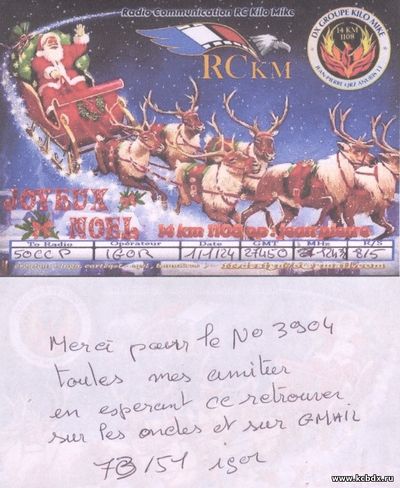 Radio Communication RC Kilo Mike
RCKM
DX GROUPE KILO MIKE
14 KM
1108
JOYEUX
NOEL
14 km 1108 op : jean pierre
To Radio Opérateur Date GMT MHz R/S
50CCP IGOR 1/1/24 27450 1243 8/5
Merci pour le No 3904
toutes mes amitier
en esperant ce retrouver
sur les ondes et sur GMAIL
73/51 igor
www.kcbdx.ru